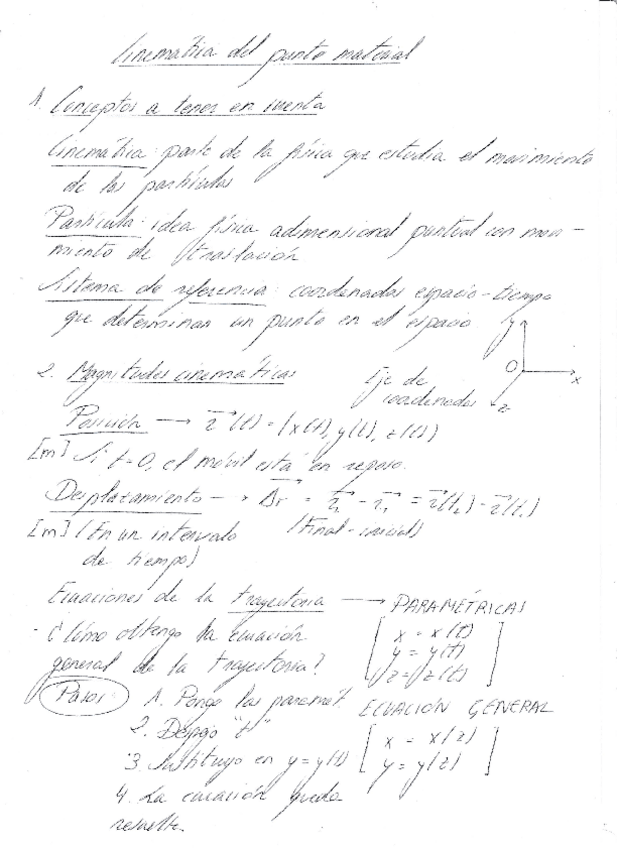 Cinemática del punto material
1. Conceptos a tener en cuenta
Cinemática: parte de la física que estudia el movimiento
de las partículas
Partícula: idea física adimensional puntual con movi-
miento de traslación
Sistema de referencia: coordenadas espacio-tiempo
que determinan un punto en el espacio.
y
O
x
z
Eje de
coordenadas
2. Magnitudes cinemáticas
Posición → r(t) = (x(t), y(t), z(t))
[m] Si t=0, el móvil está en reposo.
Desplazamiento → Δr = r₂ - r₁ = r(t₂) - r(t₁)
[m] (En un intervalo (Final - inicial)
de tiempo)
Ecuaciones de la trayectoria → PARAMÉTRICAS
x = x(t)
y = y(t)
z = z(t)
- ¿Cómo obtengo la ecuación
general de la trayectoria?
Pasos: 1. Pongo las paramét.
2. Despejo "t"
3. Sustituyo en y = y(t)
4. La ecuación queda
resuelta.
ECUACIÓN GENERAL
x = x(z)
y = y(z)